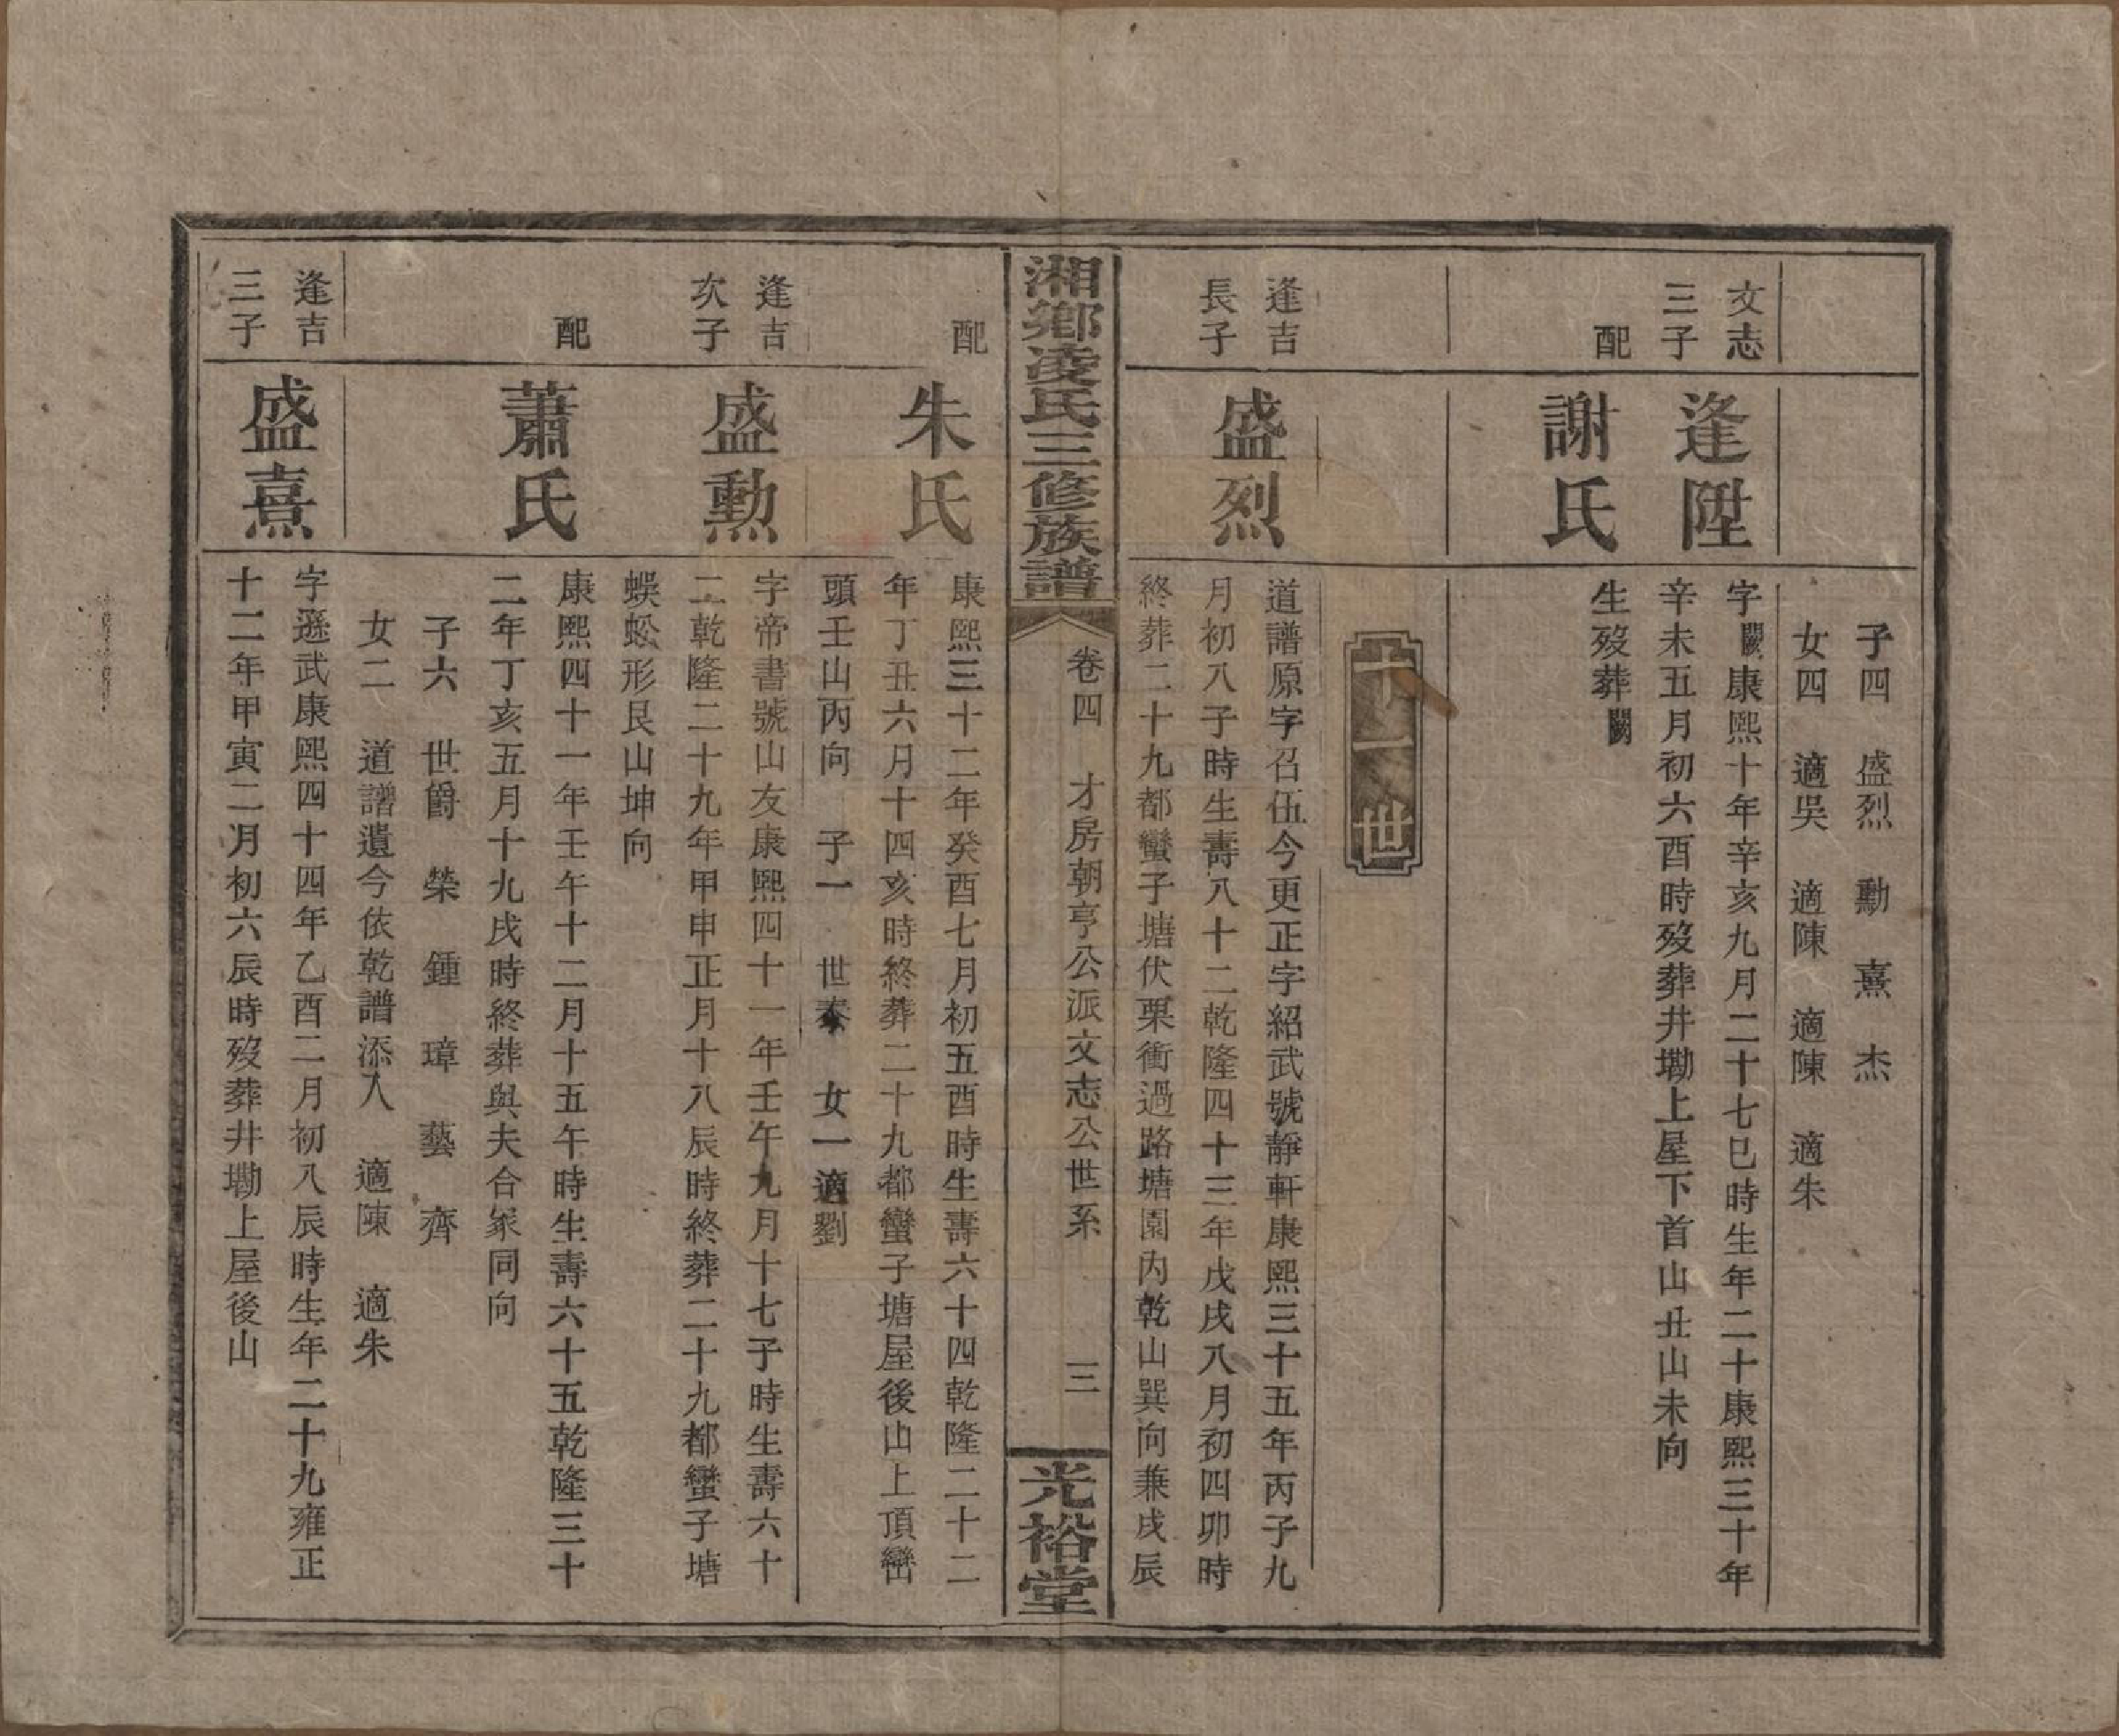 子四　盛烈　勳　熹　杰
女四　適吳　適陳　適陳　適朱
文志
三子
逢陞
字闕康熙十年辛亥九月二十七巳時生年二十康熙三十年
辛未五月初六酉時歿葬井塸上屋下首山丑山未向
配
謝氏
生歿葬闕
十一世
逢吉
長子
盛烈
道譜原字召伍今更正字紹武號靜軒康熙三十五年丙子九
月初八子時生壽八十二乾隆四十三年戊戌八月初四卯時
終葬二十九都蠻子塘伏栗衝過路塘園內乾山巽向兼戌辰
湘鄉凌氏三修族譜
卷四　才房朝亨公派文志公世系
三
光裕堂
配
朱氏
康熙三十二年癸酉七月初五酉時生壽六十四乾隆二十二
年丁丑六月十四亥時終葬二十九都蠻子塘屋後山上頂巒
頭壬山丙向　子一　世泰　女一適劉
逢吉
次子
盛勳
字帝書號山友康熙四十一年壬午九月十七子時生壽六十
二乾隆二十九年甲申正月十八辰時終葬二十九都蠻子塘
蜈蚣形艮山坤向
配
蕭氏
康熙四十一年壬午十二月十五午時生壽六十五乾隆三十
二年丁亥五月十九戌時終葬與夫合冢同向
子六　世爵　榮　鍾　璋　藝　齊
女二　道譜遺今依乾譜添入　適陳　適朱
逢吉
三子
盛熹
字遜武康熙四十四年乙酉二月初八辰時生年二十九雍正
十二年甲寅二月初六辰時歿葬井塸上屋後山